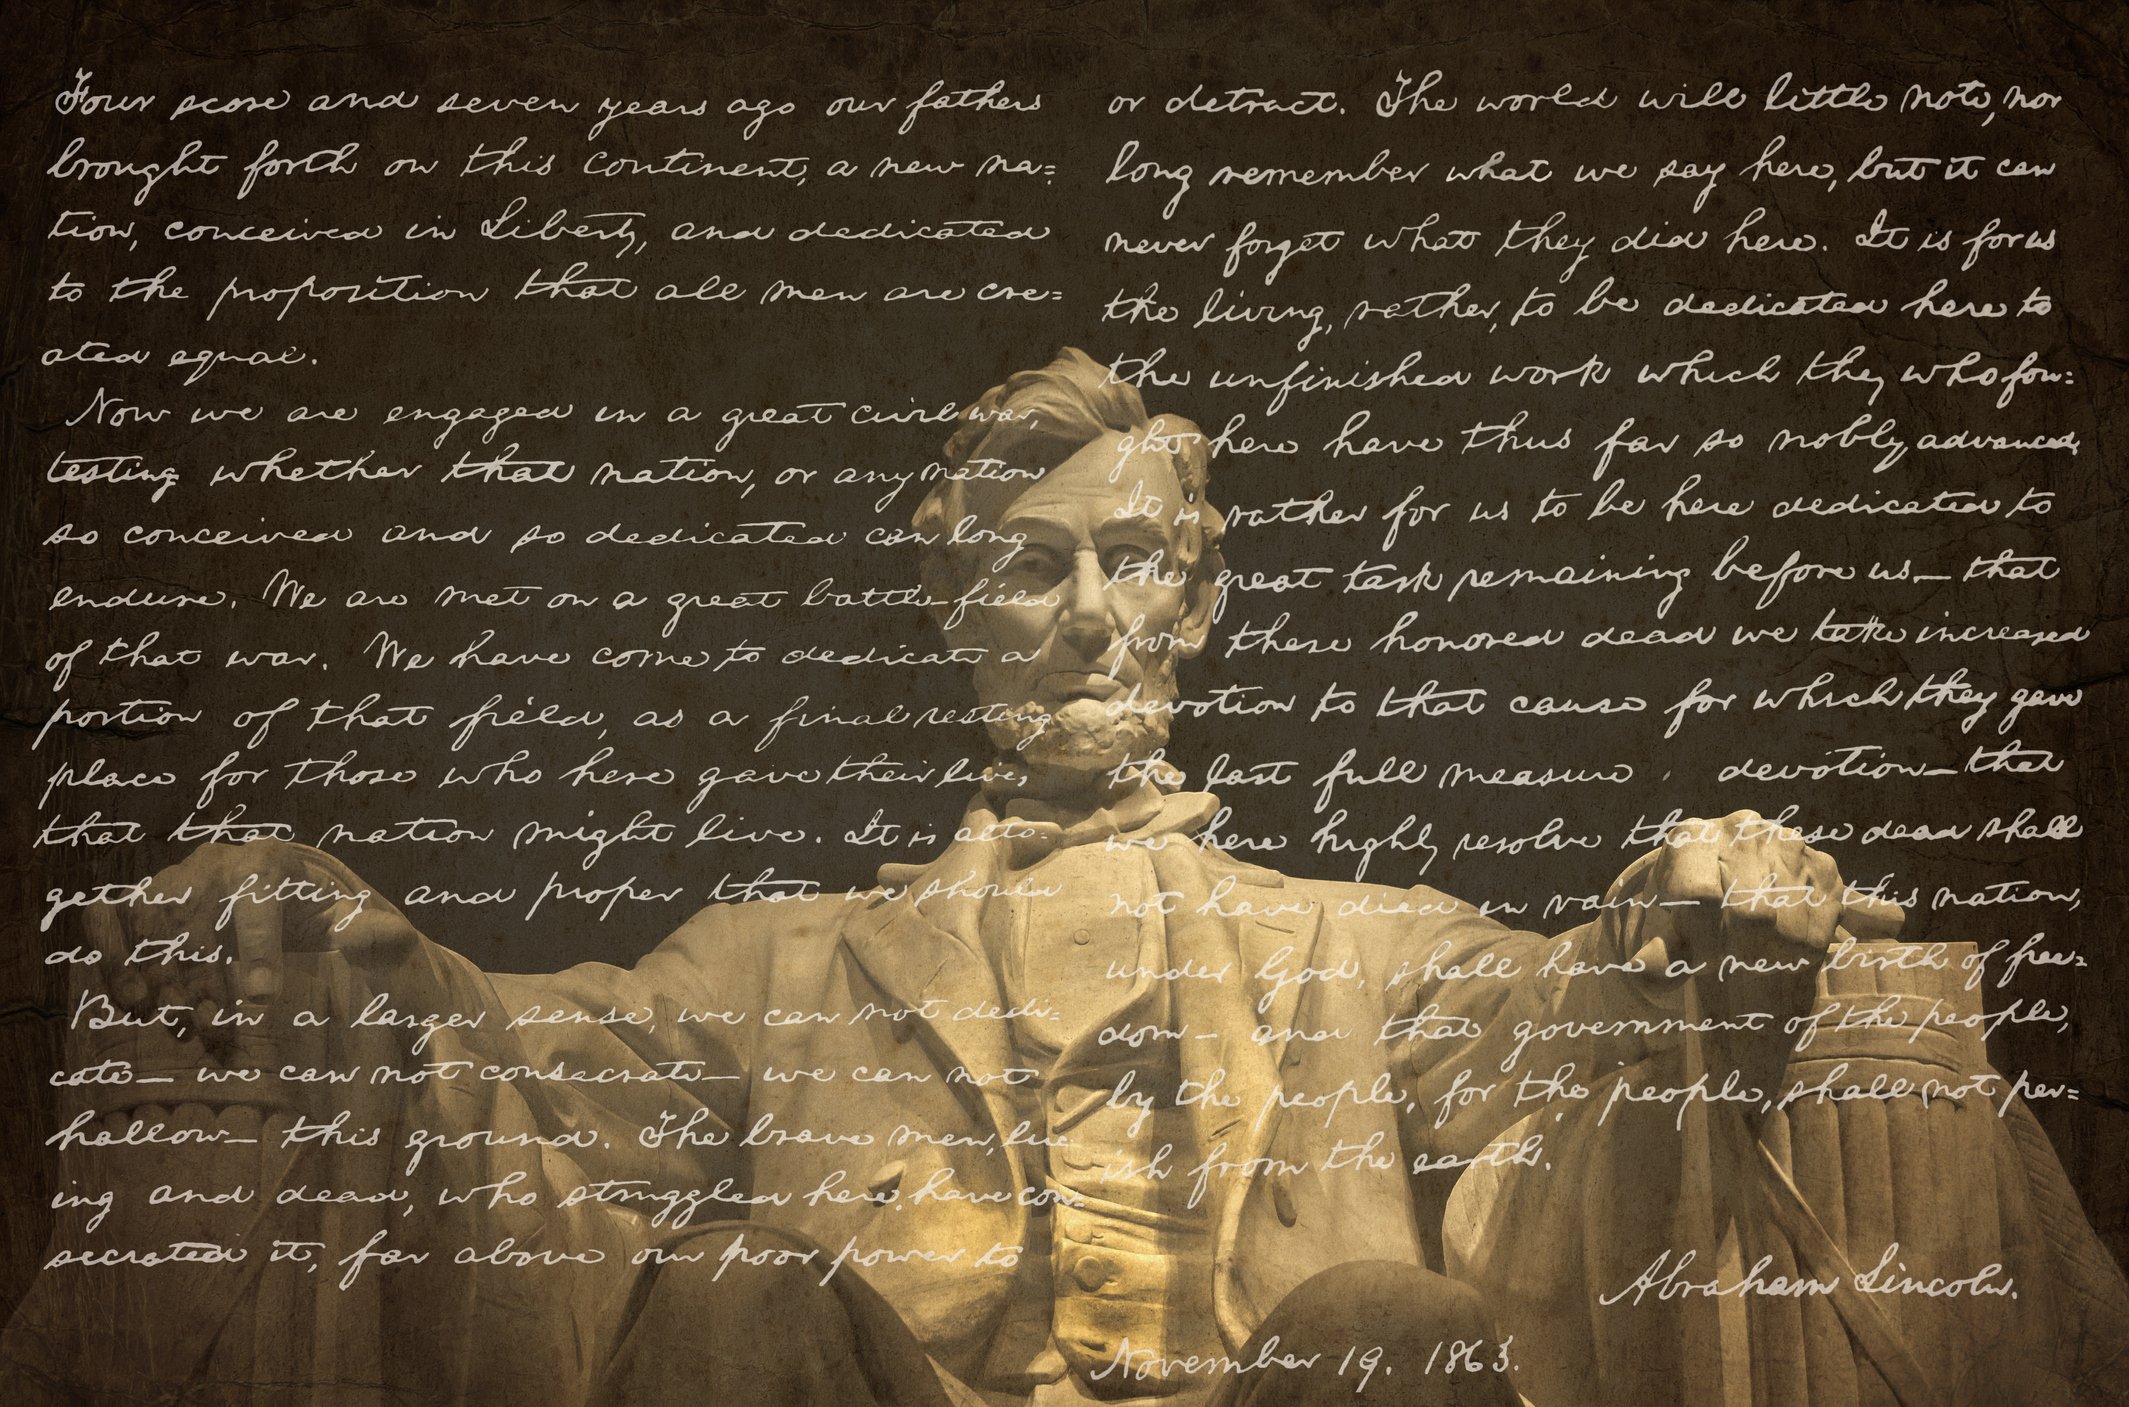 Four score and seven years ago our fathers
brought forth on this continent, a new na=
tion, conceived in Liberty, and dedicated
to the proposition that all men are cre=
ated equal.
Now we are engaged in a great civil war,
testing whether that nation, or any nation
so conceived and so dedicated can long
endure. We are met on a great battle-field
of that war. We have come to dedicate a
portion of that field, as a final resting
place for those who here gave their lives
that that nation might live. It is alto-
gether fitting and proper that we should
do this.
But, in a larger sense, we can not dedi=
cate— we can not consecrate— we can not
hallow— this ground. The brave men, liv
ing and dead, who struggled here, have con=
secrated it, far above our poor power to
or detract. The world will little note, nor
long remember what we say here, but it can
never forget what they did here. It is for us
the living, rather, to be dedicated here to
the unfinished work which they who fou=
ght here have thus far so nobly advanced.
It is rather for us to be here dedicated to
the great task remaining before us— that
from these honored dead we take increased
devotion to that cause for which they gave
the last full measure devotion— that
we here highly resolve that these dead shall
not have died in vain— that this nation,
under God, shall have a new birth of free=
dom— and that government of the people,
by the people, for the people, shall not per=
ish from the earth.
Abraham Lincoln.
November 19. 1863.